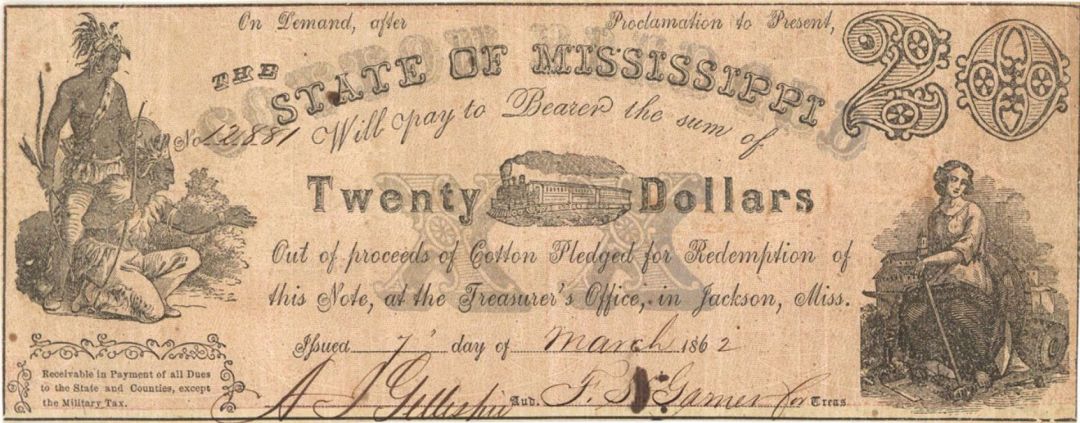 On Demand, after Proclamation to Present,
THE
STATE OF MISSISSIPPI
20
No 12,881 Will pay to Bearer the sum of
Twenty Dollars
Out of proceeds of Cotton Pledged for Redemption of
this Note, at the Treasurer's Office, in Jackson, Miss.
Issued 7 day of March 1862
Receivable in Payment of all Dues
to the State and Counties, except
the Military Tax.
A J Gillespie Aud. for Treas